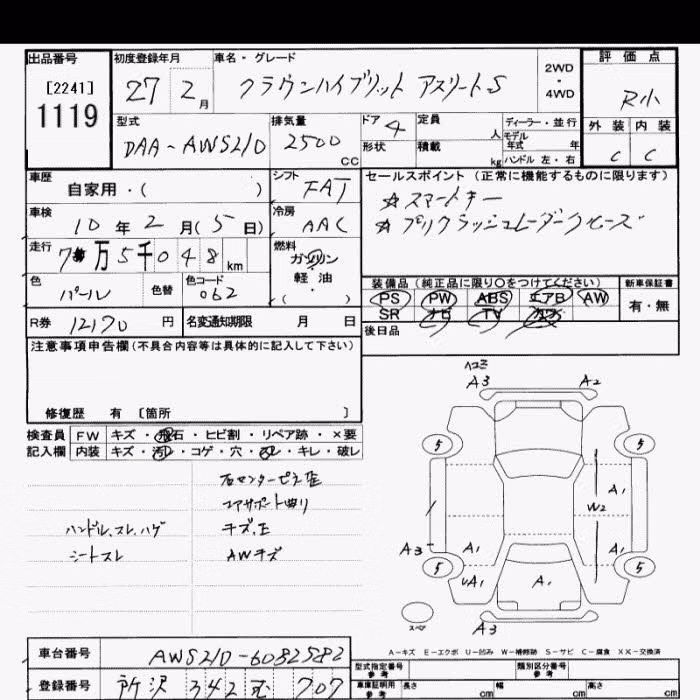 出品番号 初度登録年月 車名・グレード 評価点
[2241] 27 2月 クラウンハイブリット アスリートS 2WD・4WD R小
1119
型式 排気量 ドア 定員 ディーラー・並行 外装 内装
DAA-AWS210 2500cc 4 人 モデル年式 年 C C
形状 積載 kg ハンドル 左・右
車歴 自家用・( ) シフト FAT セールスポイント (正常に機能するものに限ります)
車検 10年2月(5日) 冷房 AAC ☆スマートキー
☆プリクラッシュレーダークルーズ
走行 7万5千048km 燃料 ガソリン
軽油
・( )
色 パール 色替 色コード 062
装備品 (純正品に限り○をつけてください) 新車保証書
PS PW ABS エアB AW 有・無
SR ナビ TV カワ
R券 12170円 名変通知期限 月 日 後日品
注意事項申告欄(不具合内容等は具体的に記入して下さい)
修復歴 有 〔箇所 〕
検査員 FW キズ・飛石・ヒビ割・リペア跡・×要
記入欄 内装 キズ・汚れ・コゲ・穴・スレ・キレ・破レ
右センターピラ歪
コアサポート曲り
ハンドル、スレ、ハゲ キズ、E
シートスレ AWキズ
ヘコミ
A3 A2
5 5
A1
W2
A3 A1 A1
5 5
UA1 A1
スペア A3
A-キズ E-エクボ U-凹み W-補修跡 S-サビ C-腐食 XX-交換済
車台番号 AWS210-6082582
型式指定番号 参考 類別区分番号 参考
登録番号 所沢 342 む 707
車庫証明用 参考 長さ cm 幅 cm 高さ cm